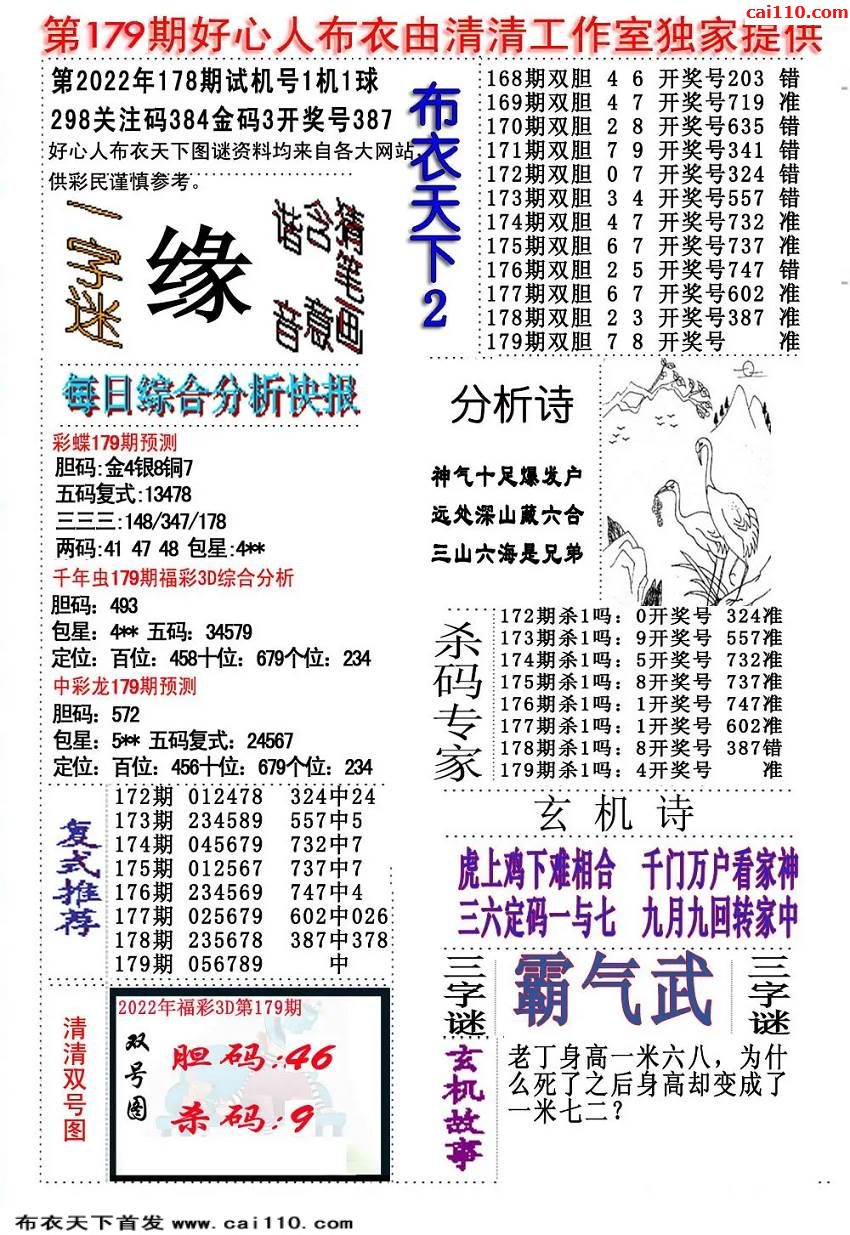 cai110.com
第179期好心人布衣由清清工作室独家提供
第2022年178期试机号1机1球
298关注码384金码3开奖号387
好心人布衣天下图谜资料均来自各大网站,
供彩民谨慎参考。
一字迷
缘
谐音
含意
猜笔画
布衣天下2
168期双胆 4 6 开奖号203 错
169期双胆 4 7 开奖号719 准
170期双胆 2 8 开奖号635 错
171期双胆 7 9 开奖号341 错
172期双胆 0 7 开奖号324 错
173期双胆 3 4 开奖号557 错
174期双胆 4 7 开奖号732 准
175期双胆 6 7 开奖号737 准
176期双胆 2 5 开奖号747 错
177期双胆 6 7 开奖号602 准
178期双胆 2 3 开奖号387 准
179期双胆 7 8 开奖号 准
每日综合分析快报
彩蝶179期预测
胆码:金4银8铜7
五码复式:13478
三三三:148/347/178
两码:41 47 48 包星:4**
千年虫179期福彩3D综合分析
胆码：493
包星：4** 五码：34579
定位：百位：458十位：679个位：234
中彩龙179期预测
胆码：572
包星：5** 五码复式：24567
定位：百位：456十位：679个位：234
分析诗
神气十足爆发户
远处深山藏六合
三山六海是兄弟
杀码专家
172期杀1吗：0开奖号 324准
173期杀1吗：9开奖号 557准
174期杀1吗：5开奖号 732准
175期杀1吗：8开奖号 737准
176期杀1吗：1开奖号 747准
177期杀1吗：1开奖号 602准
178期杀1吗：8开奖号 387错
179期杀1吗：4开奖号 准
复式推荐
172期 012478 324中24
173期 234589 557中5
174期 045679 732中7
175期 012567 737中7
176期 234569 747中4
177期 025679 602中026
178期 235678 387中378
179期 056789 中
玄机诗
虎上鸡下难相合 千门万户看家神
三六定码一与七 九月九回转家中
三字谜
霸气武
三字谜
清清双号图
2022年福彩3D第179期
双号图
胆码:46
杀码:9
玄机故事
老丁身高一米六八，为什
么死了之后身高却变成了
一米七二？
布衣天下首发 www.cai110.com